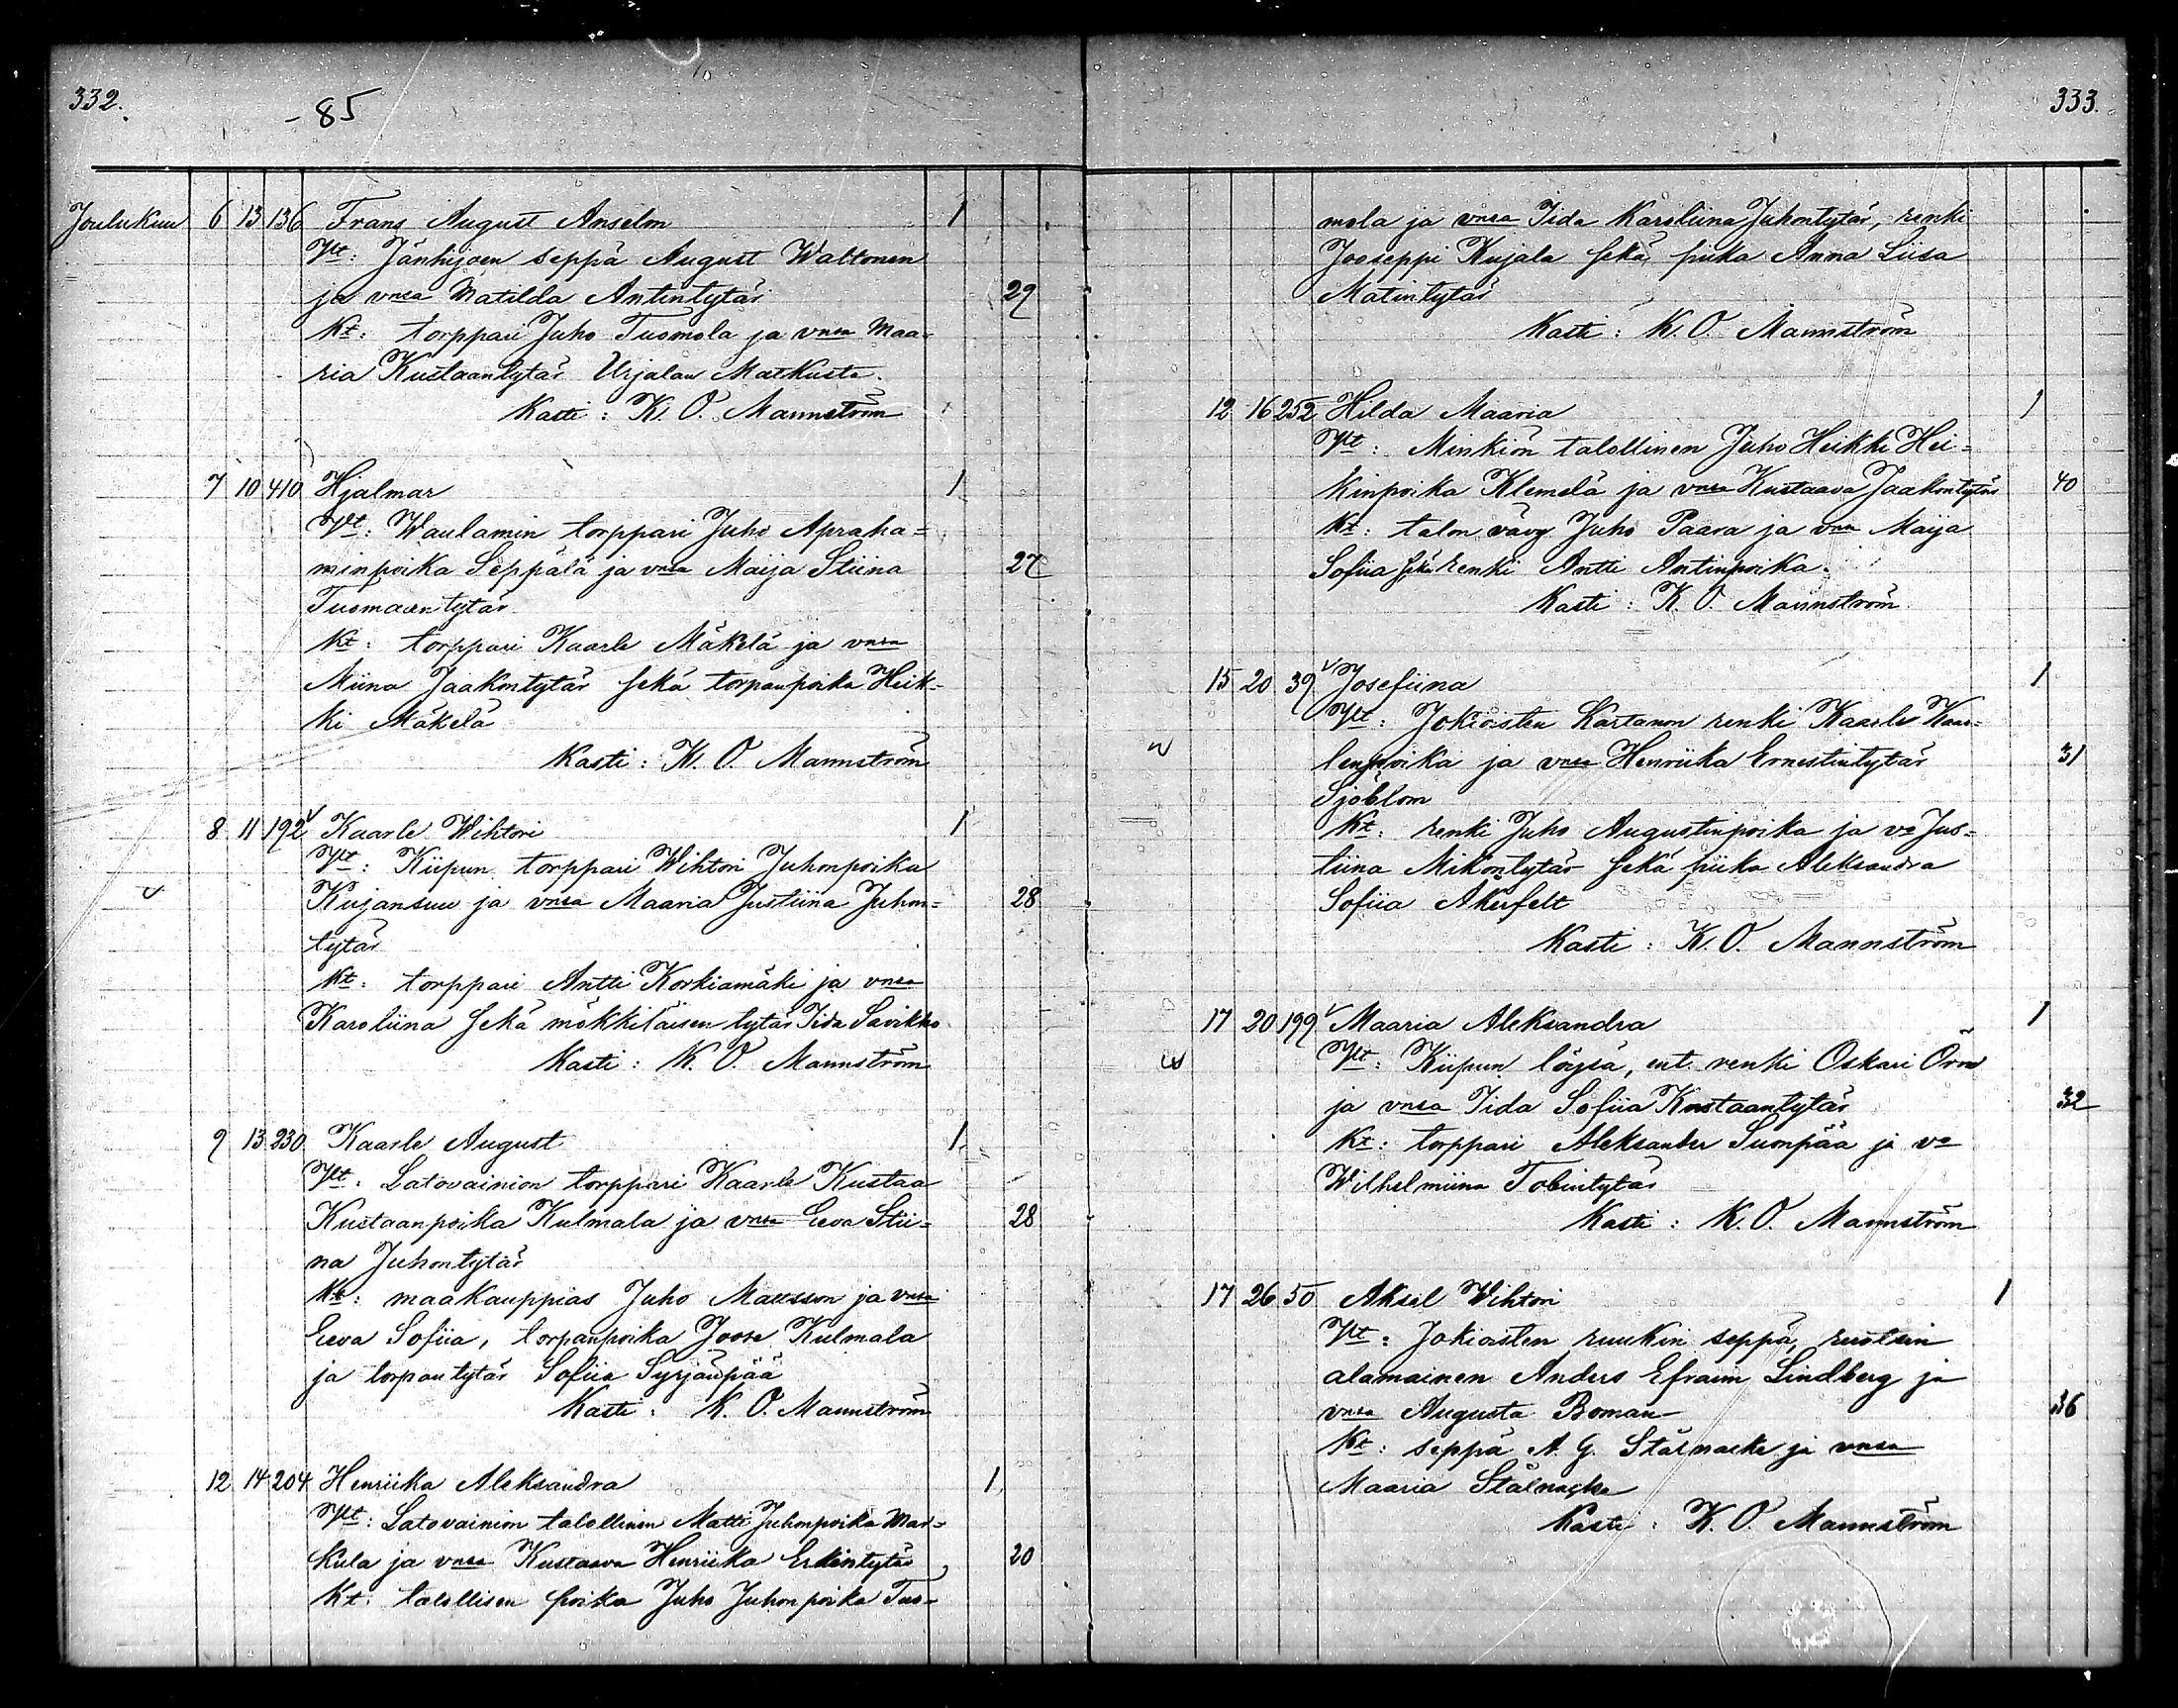 332.
- 85
Joulukuu 6 13 136 Frans August Anselm 1
Vt: Jänhijoen seppä August Waltonen
ja vnsa Matilda Antintytär 29
Kt: torppari Juho Tuomola ja vnsa Maa-
ria Kustaantytär Urjalan Matkusta.
Kasti: K. O. Mannström
7 10 410 Hjalmar 1
Vt: Waulamin torppari Juho Apraha=
minpoika Seppälä ja vnsa Maija Stiina 27
Tuomaantytär
Kt: torppari Kaarle Mäkelä ja vnsa
Miina Jaakontytär sekä torpanpoika Heik-
ki Mäkelä
Kasti: K. O. Mannström
8 11 192 Kaarle Wihtori 1
Vt: Kiipun torppari Wihtori Juhonpoika
Kujansuu ja vnsa Maaria Justiina Juhon= 28
tytär
Kt: torppari Antti Korkiamäki ja vnsa
Karoliina sekä mökkiläisen tytär Iida Savikko
Kasti: K. O. Mannström
9 13 230 Kaarle August 1
Vt: Latovainion torppari Kaarle Kustaa
Kustaanpoika Kulmala ja vnsa Eeva Stii- 28
na Juhontytär
Kt: maakauppias Juho Mausson ja vnsa
Eeva Sofiia, torpanpoika Joose Kulmala
ja torpantytär Sofiia Syrjänpää
Kasti: K. O. Mannström
12 14 204 Henriika Aleksandra 1
Vt: Latovainion talollinen Matti Juhonpoika Mar=
kula ja vnsa Kustaava Henriika Erkintytär 20
Kt: talollisen poika Juho Juhonpoika Tuo-
333.
mola ja vnsa Iida Karoliina Juhontytär, renki
Jooseppi Kujala sekä piika Anna Liisa
Matintytär
Kasti: K. O. Mannström
12 16 252 Hilda Maaria 1
Vt: Minkiön talollinen Juho Heikki Hei=
kinpoika Klemelä ja vnsa Kustaava Jaakontytär 40
Kt: talon vävy Juho Paara ja vnsa Maija
Sofiia sekä renki Antti Antinpoika.
Kasti: K. O. Mannström
15 20 39 Josefiina 1
Vt: Jokioisten Kartanon renki Kaarle Kaar=
lenpoika ja vnsa Henriika Ernestintytär 31
Sjöblom
Kt: renki Juho Augustinpoika ja vo Jus=
tiina Mikontytär sekä piika Aleksandra
Sofiia Åkerfelt
Kasti: K. O. Mannström
17 20 199 Maaria Aleksandra 1
Vt: Kiipun löysä, ent. renki Oskari Örn
ja vnsa Iida Sofiia Kustaantytär 32
Kt: torppari Aleksander Suonpää ja vo
Wilhelmiina Tobintytär
Kasti: K. O. Mannström
17 26 50 Aksel Wihtori 1
Vt: Jokioisten ruukin seppä, ruotsin
alamainen Anders Efraim Lindberg ja
vnsa Augusta Boman 36
Kt: seppä A. G. Stålnacke ja vnsa
Maaria Stålnacke
Kasti: K. O. Mannström